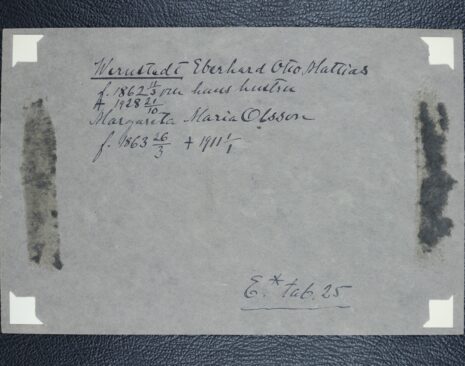 Wernstedt Eberhard Otto Mattias
f. 1862 11/3 och hans hustru
✝ 1928 21/10
Margareta Maria Olsson
f. 1863 26/3 ✝ 1911 1/1
E.* tab. 25